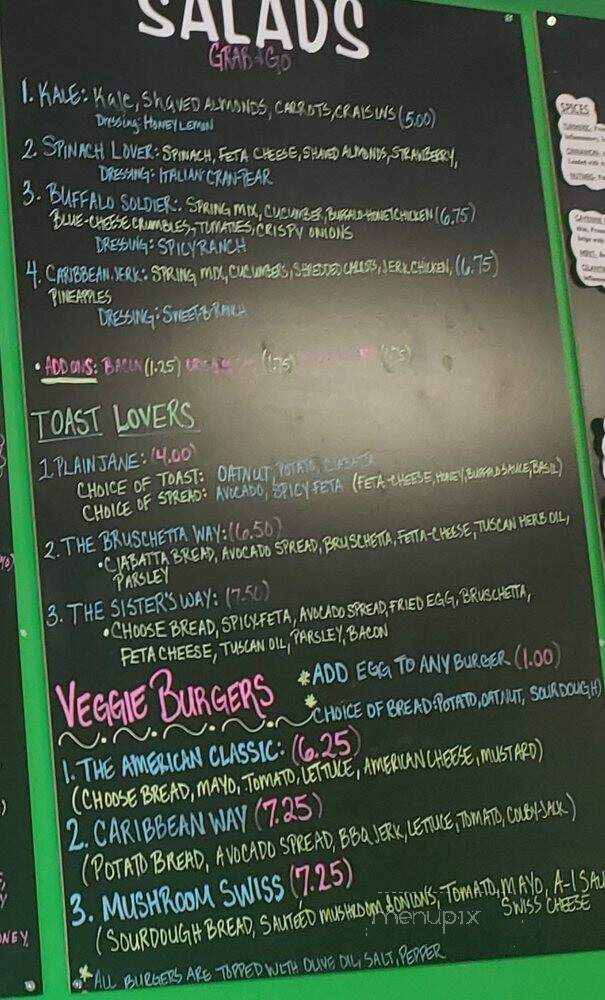 SALADS
GRAB & GO
1. KALE: Kale, SHAVED ALMONDS, CARROTS, CRAISINS (5.00)
Dressing: HONEY LEMON
2. SPINACH LOVER: SPINACH, FETA CHEESE, SHAVED ALMONDS, STRAWBERRY,
DRESSING: ITALIAN CRAN-PEAR
3. BUFFALO SOLDIER: SPRING MIX, CUCUMBER, BUFFALO-HONEY CHICKEN (6.75)
BLUE-CHEESE CRUMBLES, TOMATOES, CRISPY ONIONS
DRESSING: SPICY RANCH
4. CARIBBEAN JERK: SPRING MIX, CUCUMBERS, SHREDDED CARROTS, JERK CHICKEN, (6.75)
PINEAPPLES
DRESSING: SWEET-B-RANCH
• ADD ONS: BACON (1.25) (1.75)
TOAST LOVERS
1. PLAIN JANE: (4.00)
CHOICE OF TOAST: OATNUT, POTATO, CIABATTA
CHOICE OF SPREAD: AVOCADO, SPICY FETA (FETA-CHEESE, HONEY, BUFFALO SAUCE, BASIL)
2. THE BRUSCHETTA WAY: (6.50)
• CIABATTA BREAD, AVOCADO SPREAD, BRUSCHETTA, FETTA-CHEESE, TUSCAN HERB OIL,
PARSLEY
3. THE SISTER'S WAY: (7.50)
• CHOOSE BREAD, SPICY-FETA, AVOCADO SPREAD, FRIED EGG, BRUSCHETTA,
FETA CHEESE, TUSCAN OIL, PARSLEY, BACON
VEGGIE BURGERS
* ADD EGG TO ANY BURGER (1.00)
* CHOICE OF BREAD: POTATO, OATNUT, SOURDOUGH)
1. THE AMERICAN CLASSIC: (6.25)
(CHOOSE BREAD, MAYO, TOMATO, LETTUCE, AMERICAN CHEESE, MUSTARD)
2. CARIBBEAN WAY (7.25)
(POTATO BREAD, AVOCADO SPREAD, BBQ JERK, LETTUCE, TOMATO, COLBY-JACK)
3. MUSHROOM SWISS (7.25)
(SOURDOUGH BREAD, SAUTÉED MUSHROOM & ONIONS, TOMATO, MAYO, A-1 SAU
SWISS CHEESE
* ALL BURGERS ARE TOPPED WITH OLIVE OIL, SALT, PEPPER
menupix
SPICES
ONEY,